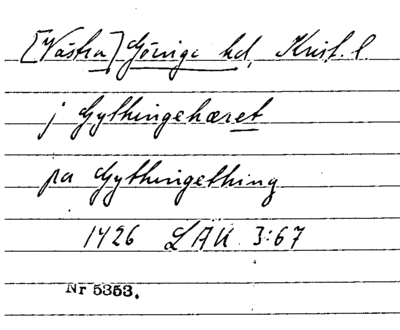 [Västra] Göinge hd, Krist. l.
j Gythingehæret
pa Gythingething
1426 LÄU 3:67
Nr 5353.